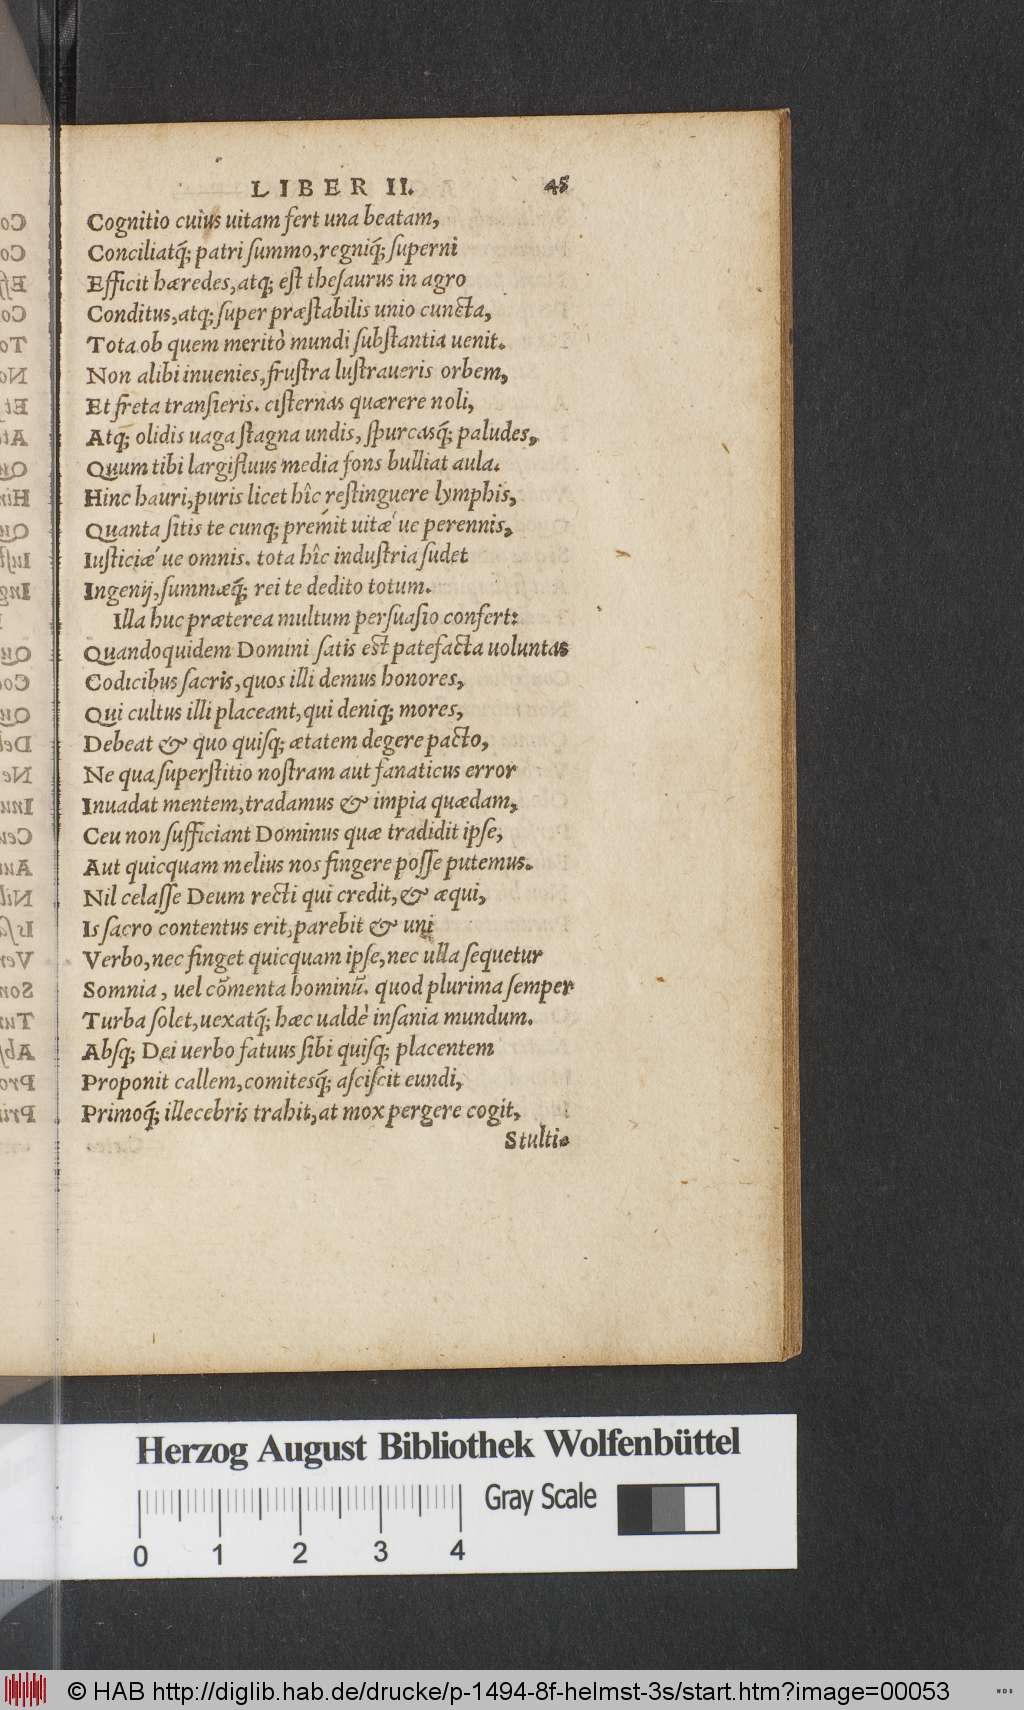 LIBER II. 45
Cognitio cuius uitam fert una beatam,
Conciliatq́; patri summo, regniq́; superni
Efficit hæredes, atq; est thesaurus in agro
Conditus, atq; super præstabilis unio cuncta,
Tota ob quem meritò mundi substantia uenit.
Non alibi inuenies, frustra lustraueris orbem,
Et freta transieris. cisternas quærere noli,
Atq; olidis uaga stagna undis, spurcasq́; paludes,
Quum tibi largifluus media fons bulliat aula.
Hinc hauri, puris licet hîc restinguere lymphis,
Quanta sitis te cunq; premit uitæ´ue perennis,
Iusticiæ´ue omnis. tota hîc industria sudet
Ingenij, summæq́; rei te dedito totum.
Illa huc præterea multum persuasio confert:
Quandoquidem Domini satis est patefacta uoluntas
Codicibus sacris, quos illi demus honores,
Qui cultus illi placeant, qui deniq; mores,
Debeat & quo quisq; ætatem degere pacto,
Ne qua superstitio nostram aut fanaticus error
Inuadat mentem, tradamus & impia quædam,
Ceu non sufficiant Dominus quæ tradidit ipse,
Aut quicquam melius nos fingere posse putemus.
Nil celasse Deum recti qui credit, & æqui,
Is sacro contentus erit, parebit & uni
Verbo, nec finget quicquam ipse, nec ulla sequetur
Somnia, uel cōmenta hominū. quod plurima semper
Turba solet, uexatq́; hæc ualdè insania mundum.
Absq; Dei uerbo fatuus sibi quisq; placentem
Proponit callem, comitesq́; asciscit eundi,
Primoq́; illecebris trahit, at mox pergere cogit,
Stulti-
Herzog August Bibliothek Wolfenbüttel
Gray Scale
0 1 2 3 4
© HAB http://diglib.hab.de/drucke/p-1494-8f-helmst-3s/start.htm?image=00053